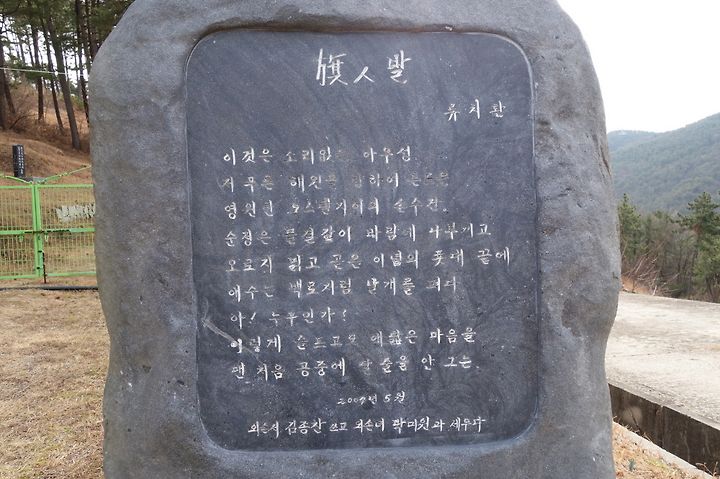 旗ㅅ발
유치환
이것은 소리없는 아우성
저 푸른 해원을 향하여 흔드는
영원한 노스탈지어의 손수건.
순정은 물결같이 바람에 나부끼고
오로지 맑고 곧은 이념의 푯대 끝에
애수는 백로처럼 날개를 펴다
아! 누구인가?
이렇게 슬프고도 애닲은 마음을
맨 처음 공중에 달 줄을 안 그는.
2009년 5월
외손서 김종찬 쓰고 외손녀 곽미원과 세우다